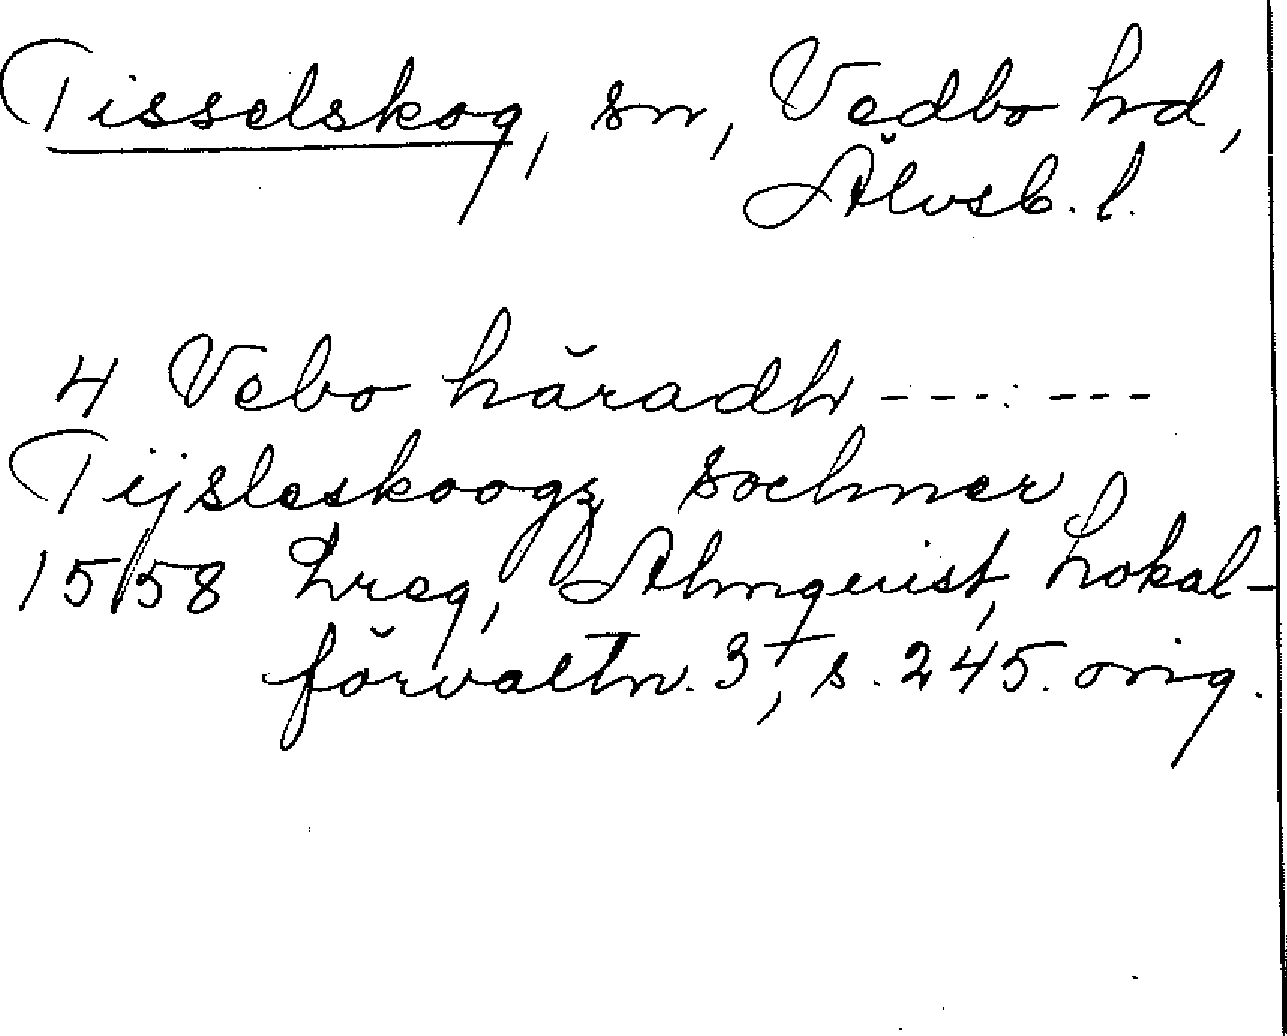 Tisselskog, sn, Vedbo hd,
Älvsb. l.
4 Vebo häradh ---:---
Tijsleskoogz sochner
1558 Lreg, Almquist, Lokal-
förvaltn. 3, s. 245. orig.